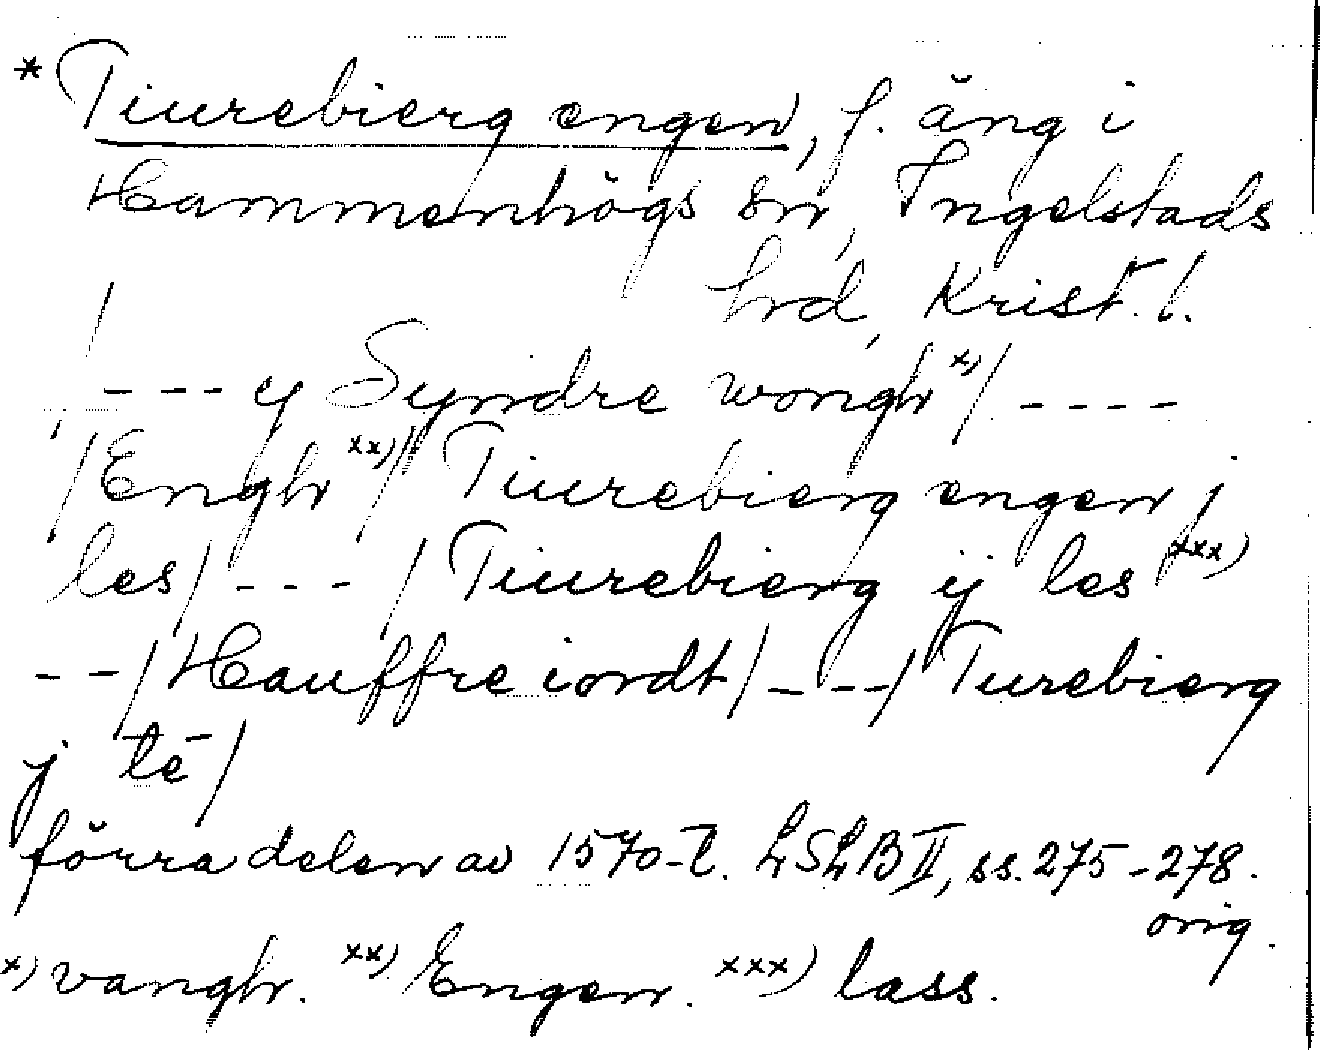 * Tiurebierg engen, f. äng i
Hammenhögs sn, Ingelstads
hrd, Krist. l.
/ --- y Syndre wongh x)/ ----
/Engh xx)/ Tiurebierg engen j
les/ --- / Tiurebierg ij les xxx)
--/Hauffre iordt/ ---/ Turebierg
j lē/
förra delen av 1570-t. LSLB II, ss. 275-278.
orig.
x) vangh. xx) Engen. xxx) lass.